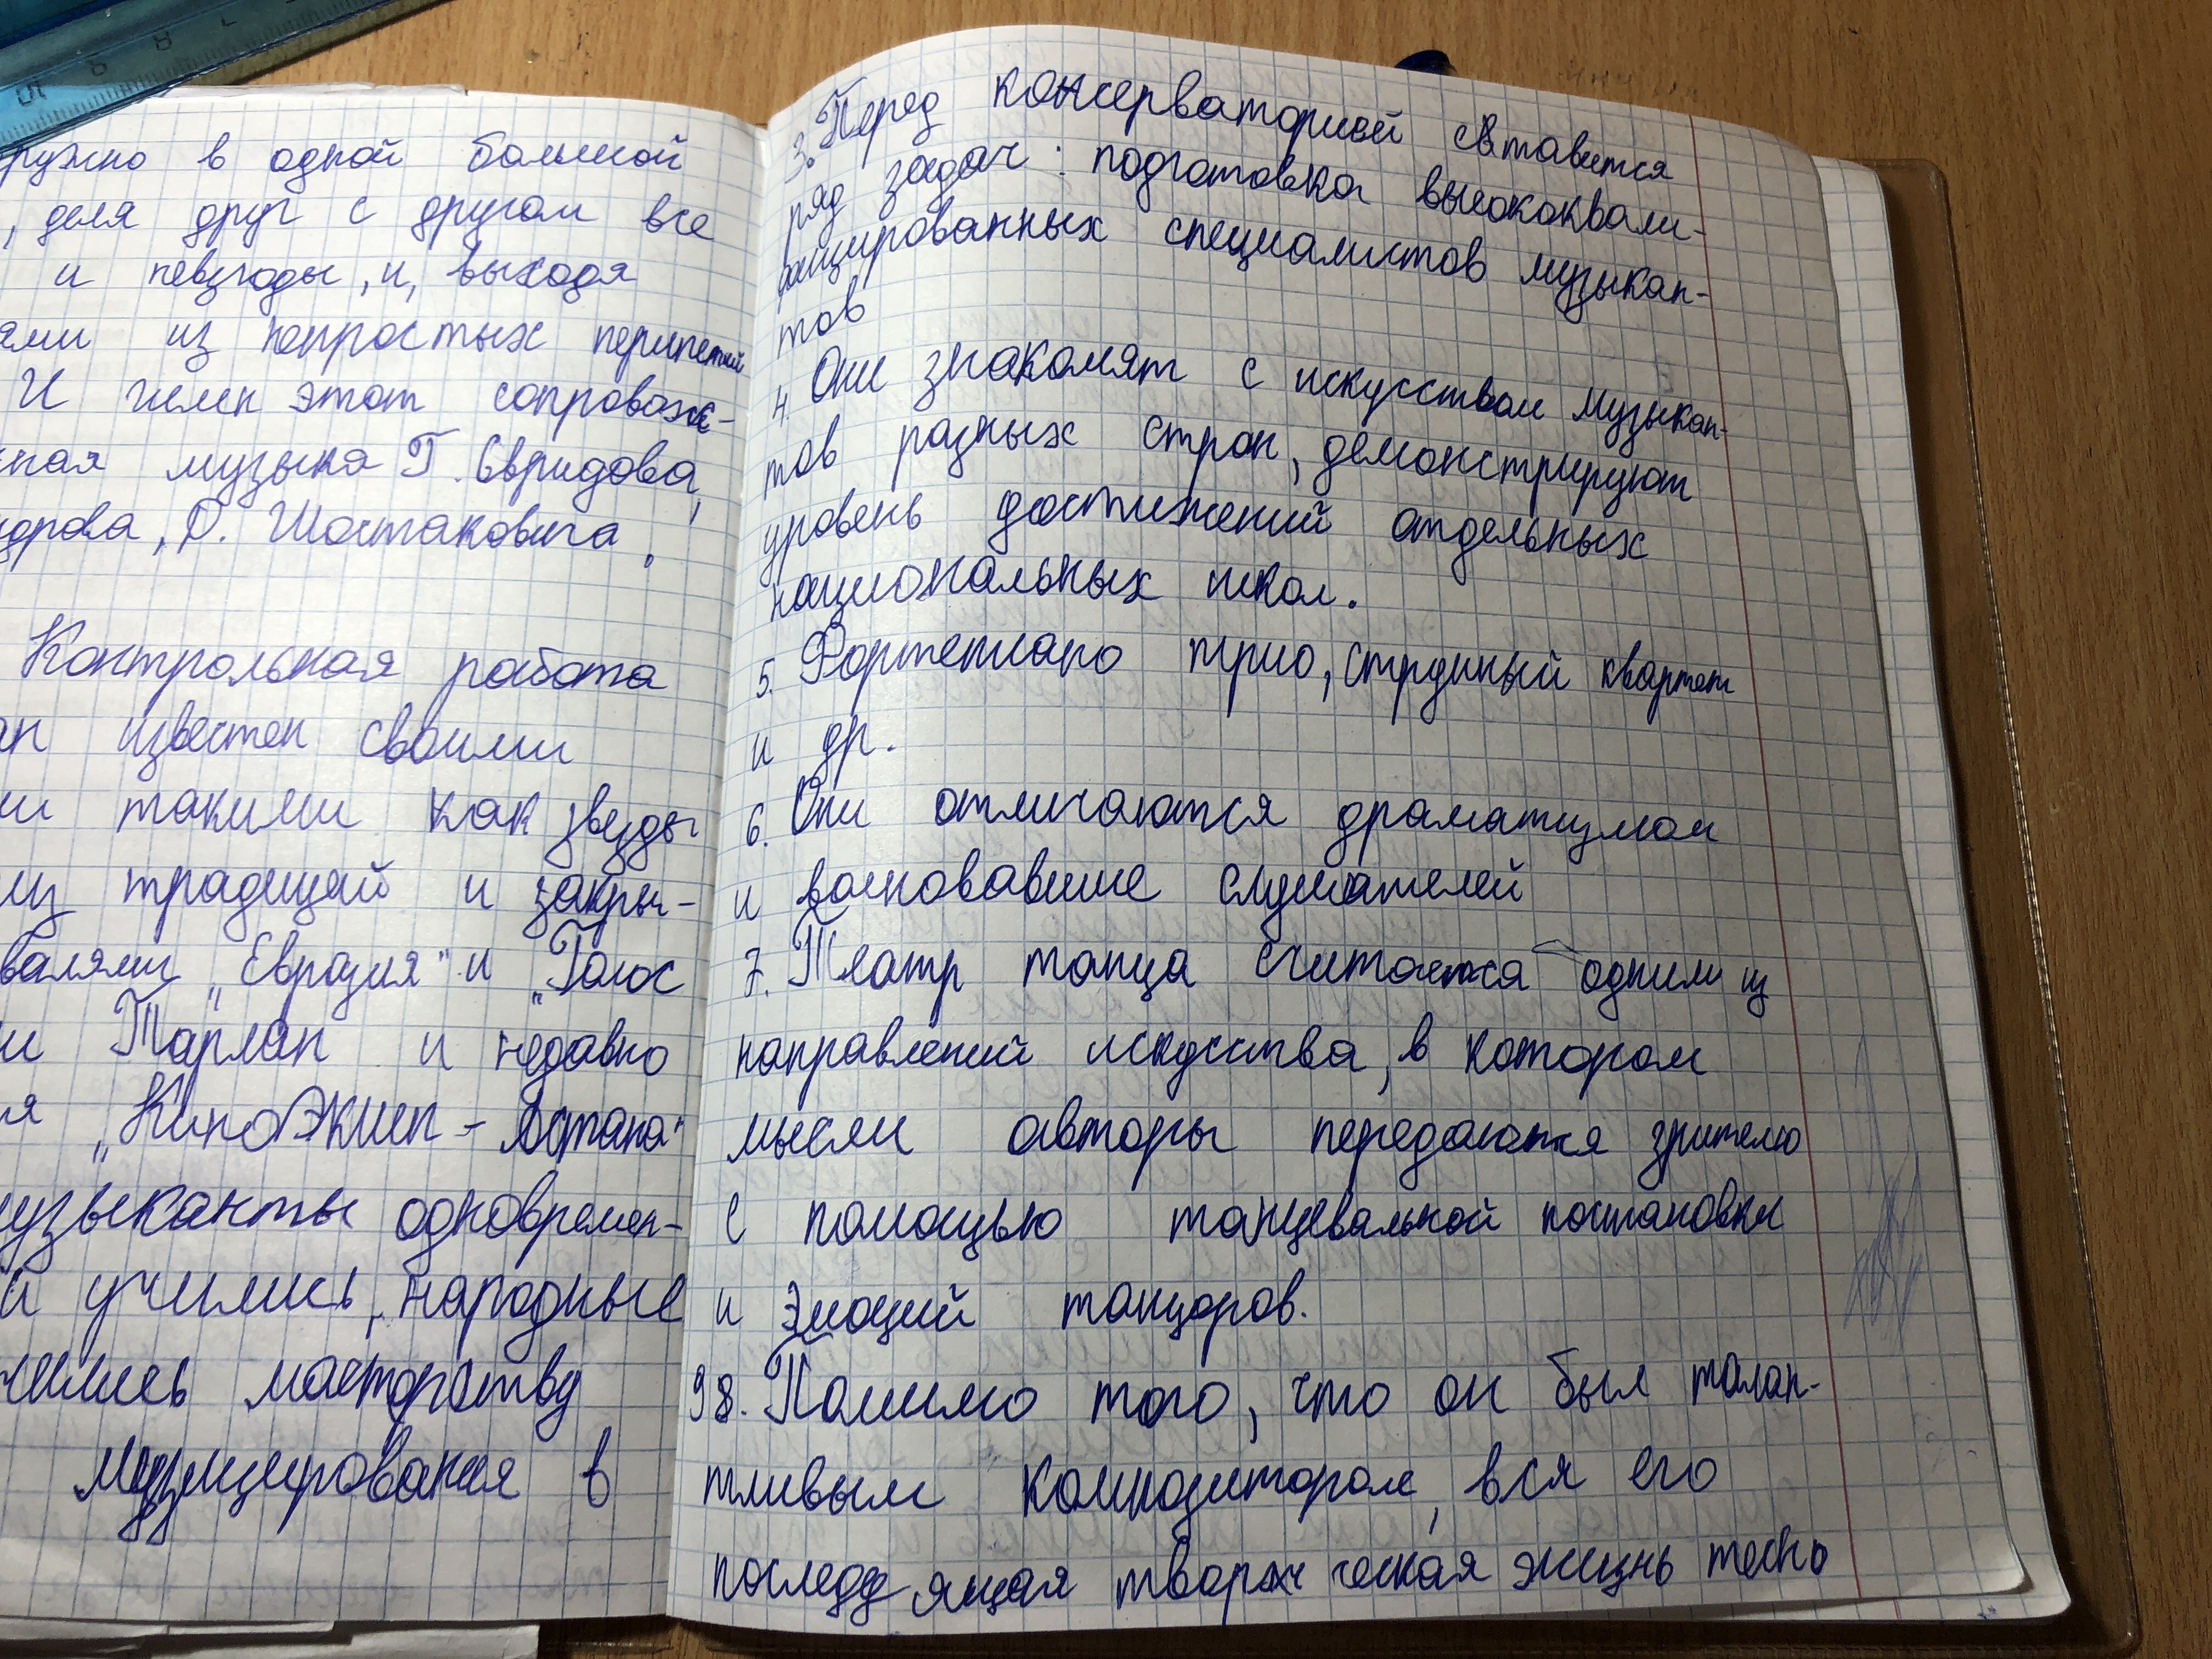 ружно в одной большой
, деля друг с другом все
и невзгоды, и, выходя
ями из непростых перипетий
И гимн этот сопровож-
ная музыка Г. Свридова,
дорова, Д. Шостаковича.
Контрольная работа
ан известен своими
ми такими как звезды
из традиций и закры-
валями "Евразия" и "Голос
и Тарлан и недавно
я "КиноЭкшен - Астана"
узыканты одновремен-
и учились, народные
чились мастерству
музицирования в
3. Перед консерваторией ставится
ряд задач: подготовка высококвали-
фицированных специалистов музыкан-
тов
4. Они знакомят с искусством музыкан-
тов разных стран, демонстрируют
уровень достижений отдельных
национальных школ.
5. Фортепиано трио, струнный квартет
и др.
6. Они отличаются драматизмом
и волновавшие слушателей
7. Театр танца считается одним из
направлений искусства, в котором
мысли авторы передаются зрителю
с помощью танцевальной постановки
и эмоций танцоров.
98. Помимо того, что он был талан-
тливым композитором, вся его
последующая творческая жизнь тесно